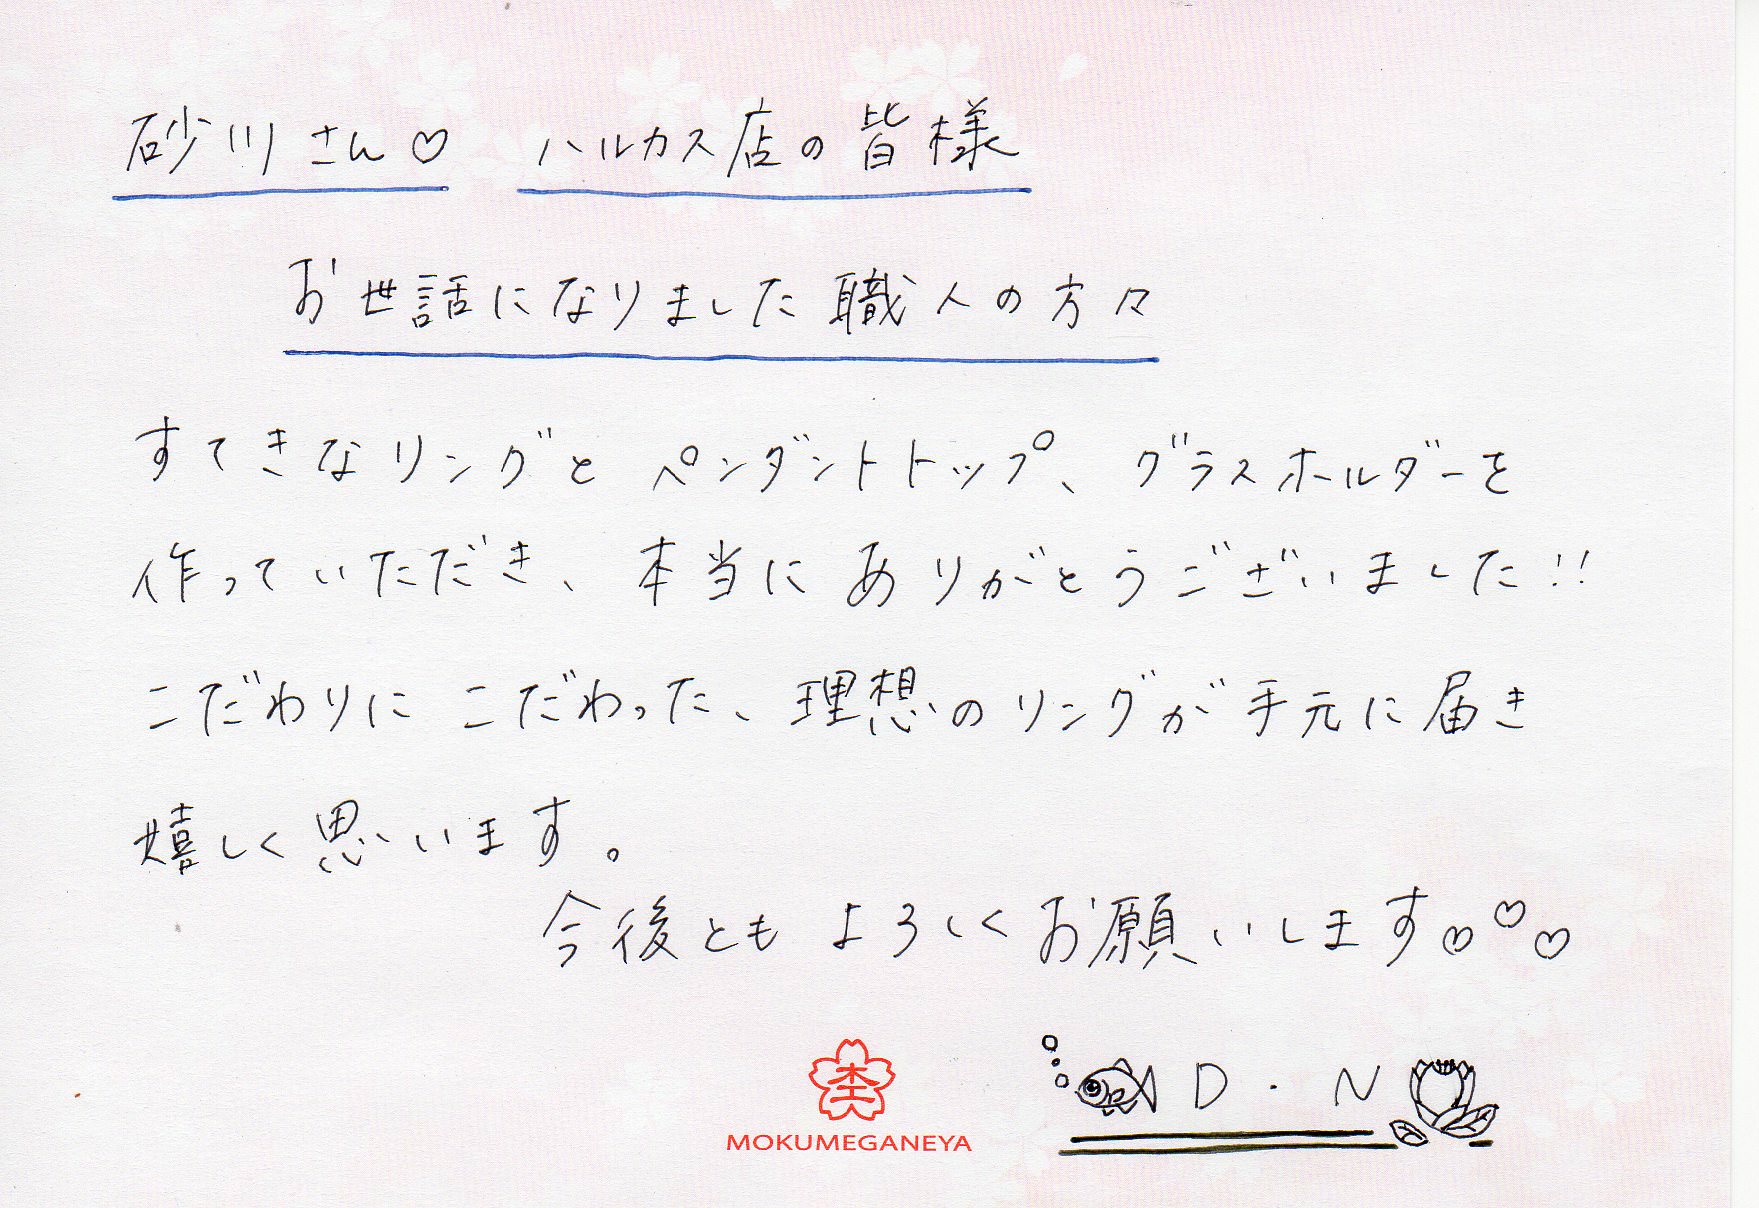 砂川さん♡ ハルカス店の皆様
お世話になりました職人の方々
すてきなリングとペンダントトップ、グラスホルダーを
作っていただき、本当にありがとうございました!!
こだわりにこだわった、理想のリングが手元に届き
嬉しく思います。
今後ともよろしくお願いします♡♡♡
杢
MOKUMEGANEYA
D・N